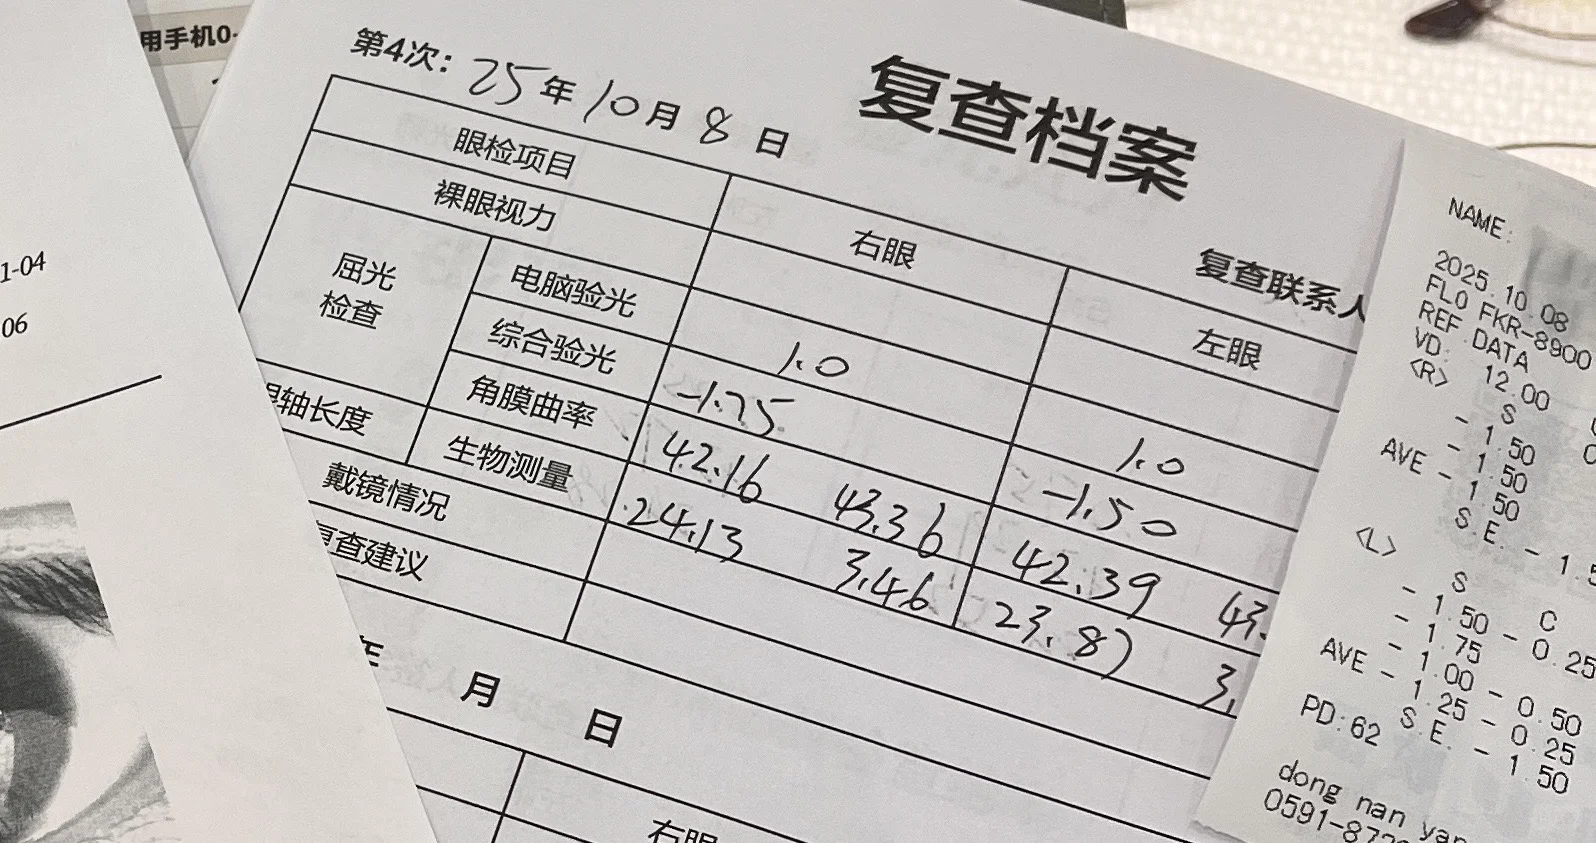 用手机0-
1-04
06
第4次: 25年10月8日
复查档案
复查联系人
眼检项目 右眼 左眼
裸眼视力
屈光检查 电脑验光 1.0 1.0
综合验光 -1.75 -1.50
角膜曲率 42.16 43.36 42.39 43.
轴长度 生物测量 24.13 3.46 23.87 3.
戴镜情况
查建议
月 日
右眼
NAME:
2025.10.08
FLO FKR-8900
REF DATA
VD: 12.00
<R>
S
- 1.50
- 1.50
AVE - 1.50
S.E. - 1.5
<L>
S C
- 1.50 - 0.25
- 1.75
- 1.00 - 0.50
AVE - 1.25 - 0.25
S.E. - 1.50
PD:62
dong nan yan
0591-872